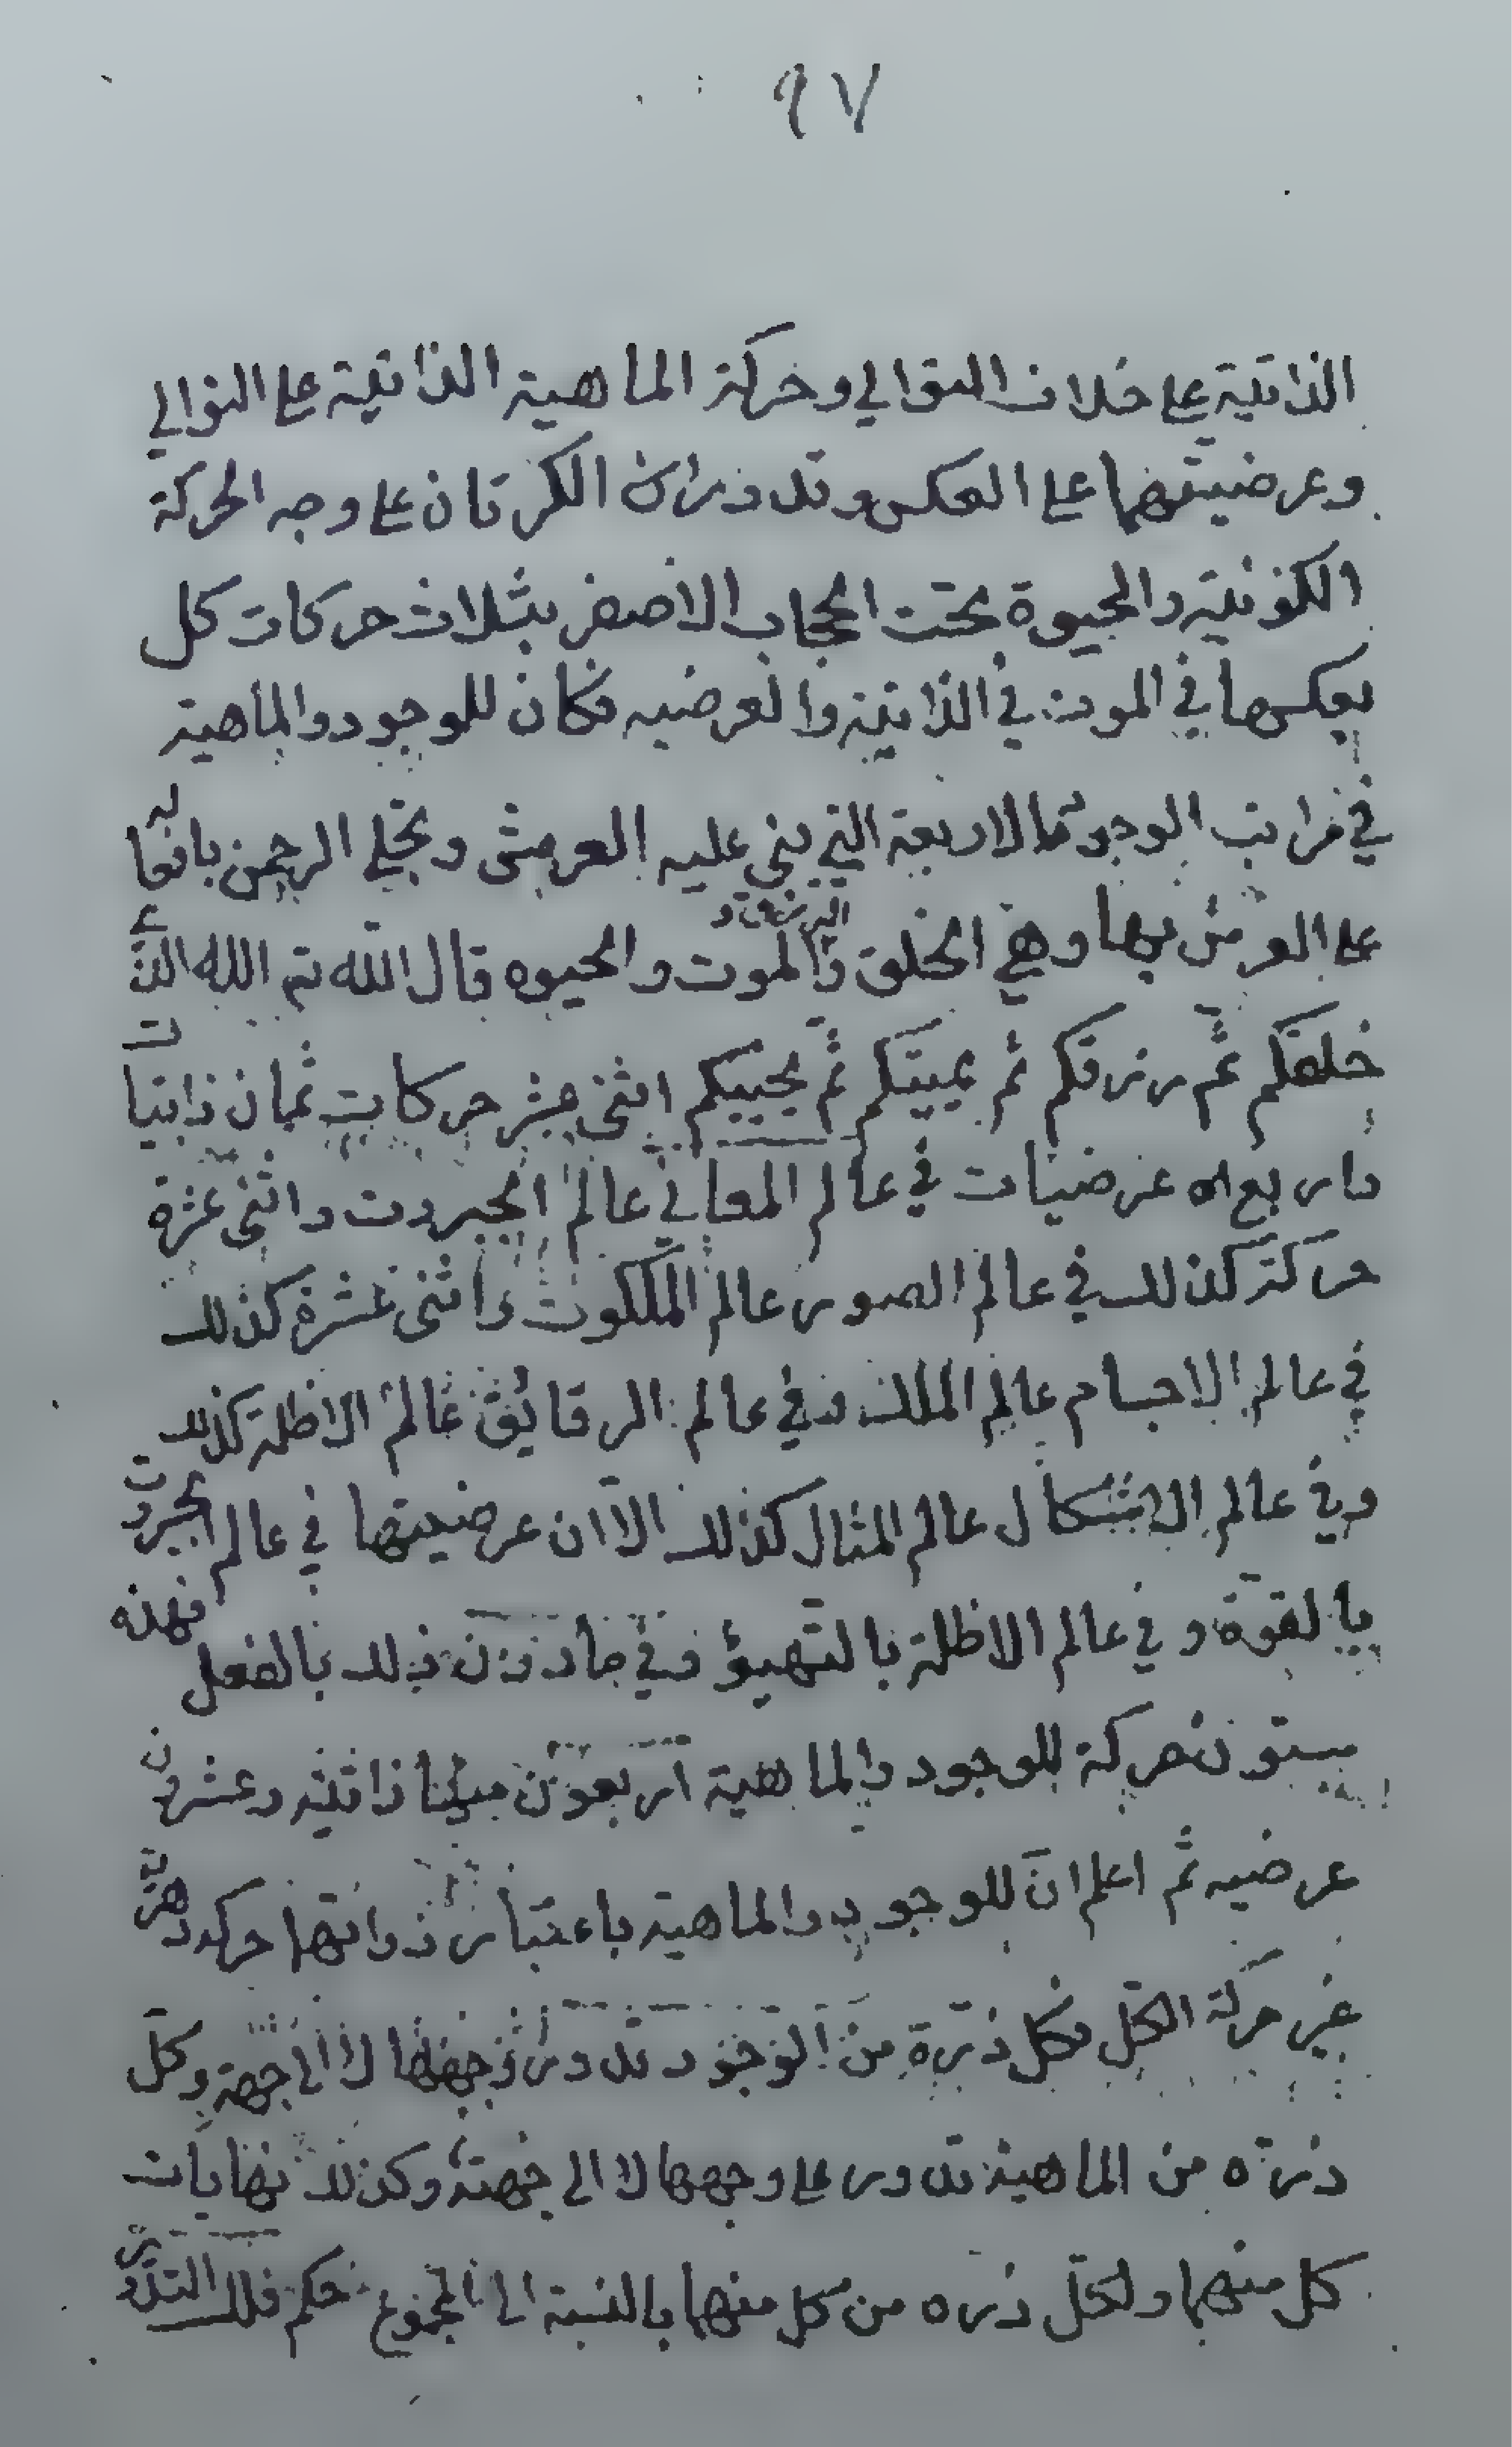 ٩٧
الذاتية على خلاف التوالي وحركة الماهية الذاتية على التوالي
وعرضيتهما على العكس وتدور الكرتان على وجه الحركة
الكونية والحيوة تحت الحجاب الاصفر بثلاث حركات كل
بعكسها في الموت في الذاتية والعرضيه فكان للوجود والماهية
في مراتب الوجود الاربعة التي بني عليه العرش وتجلى الرحمن بافعاله
على العرش بها وهي الخلق والرزق والموت والحيوه قال الله تم الله الذي
خلقكم ثم رزقكم ثم يميتكم ثم يحييكم اثنى عشر حركات ثمان ذاتيات
واربع عرضيات في عالم المعاني عالم الجبروت واثنى عشرة
حركة كذلك في عالم الصور عالم الملكوت واثنى عشرة كذلك
في عالم الاجسام عالم الملك وفي عالم الرقايق عالم الاظلة كذلك
وفي عالم الاشكال عالم المثال كذلك الا ان عرضيتها في عالم الجبروت
بالقوة وفي عالم الاظلة بالتهيؤ وفي ما دون ذلك بالفعل فهذه
ستون حركة للوجود والماهية اربعون منها ذاتية وعشرون
عرضيه ثم اعلم ان للوجود والماهية باعتبار ذواتها حركة
غير حركة الكل فكل ذرة من الوجود تدور وجهها لا الى جهة وكل
ذرة من الماهية تدور على وجهها لا الى جهة وكذلك نهايات
كل منهما ولكل ذره من كل منهما بالنسبة الى المجموع حكم فلك التدوير